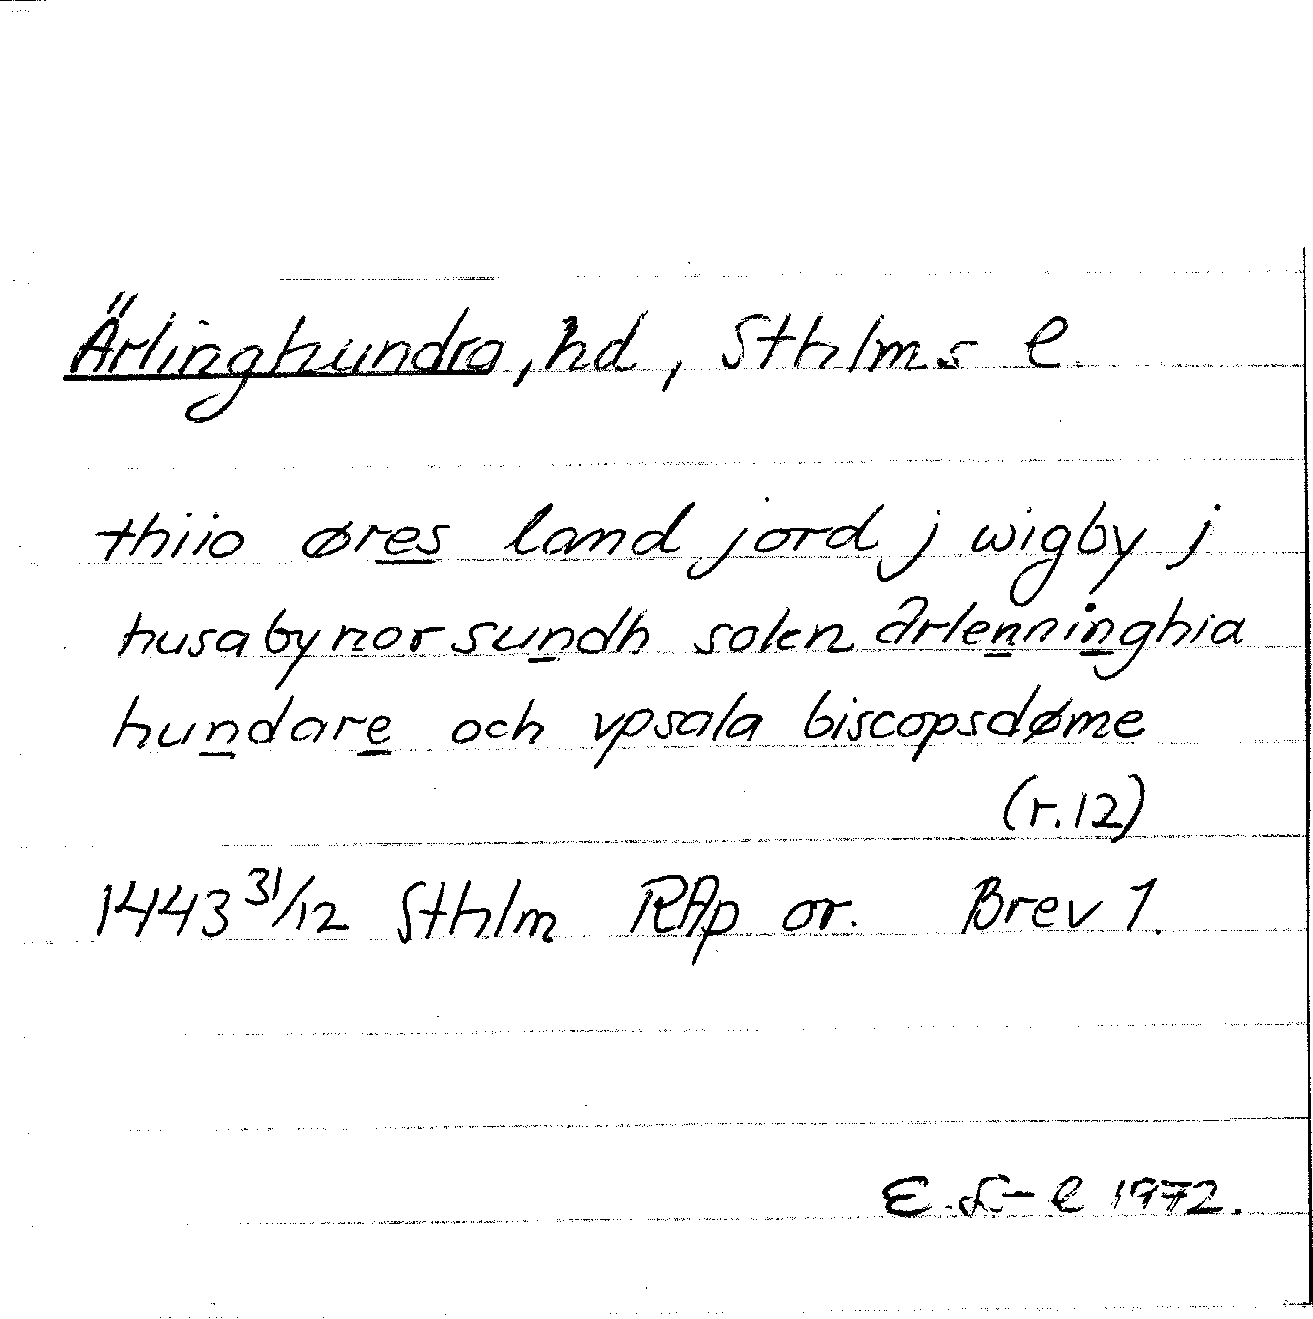 Ärlinghundra, hd, Sthlms l.
thiio øres land jord j wigby j
husabynor sundh soken ärlenninghia
hundare och vpsala biscopsdøme
(r.12)
1443 31/12 Sthlm RAp or. Brev 1.
1972.